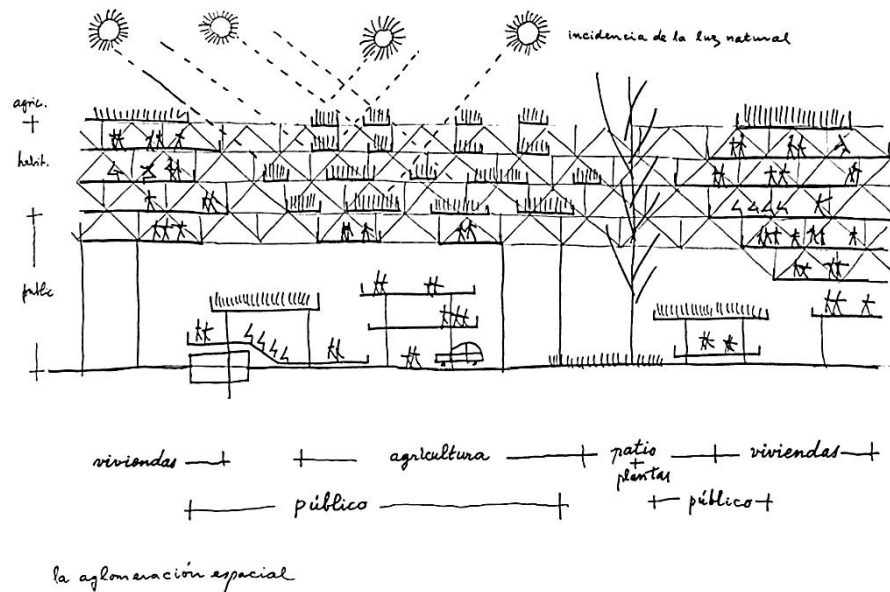 incidencia de la luz natural
agric.
habit.
public
viviendas
agricultura
patio
+
plantas
viviendas
público
público
la aglomeración espacial